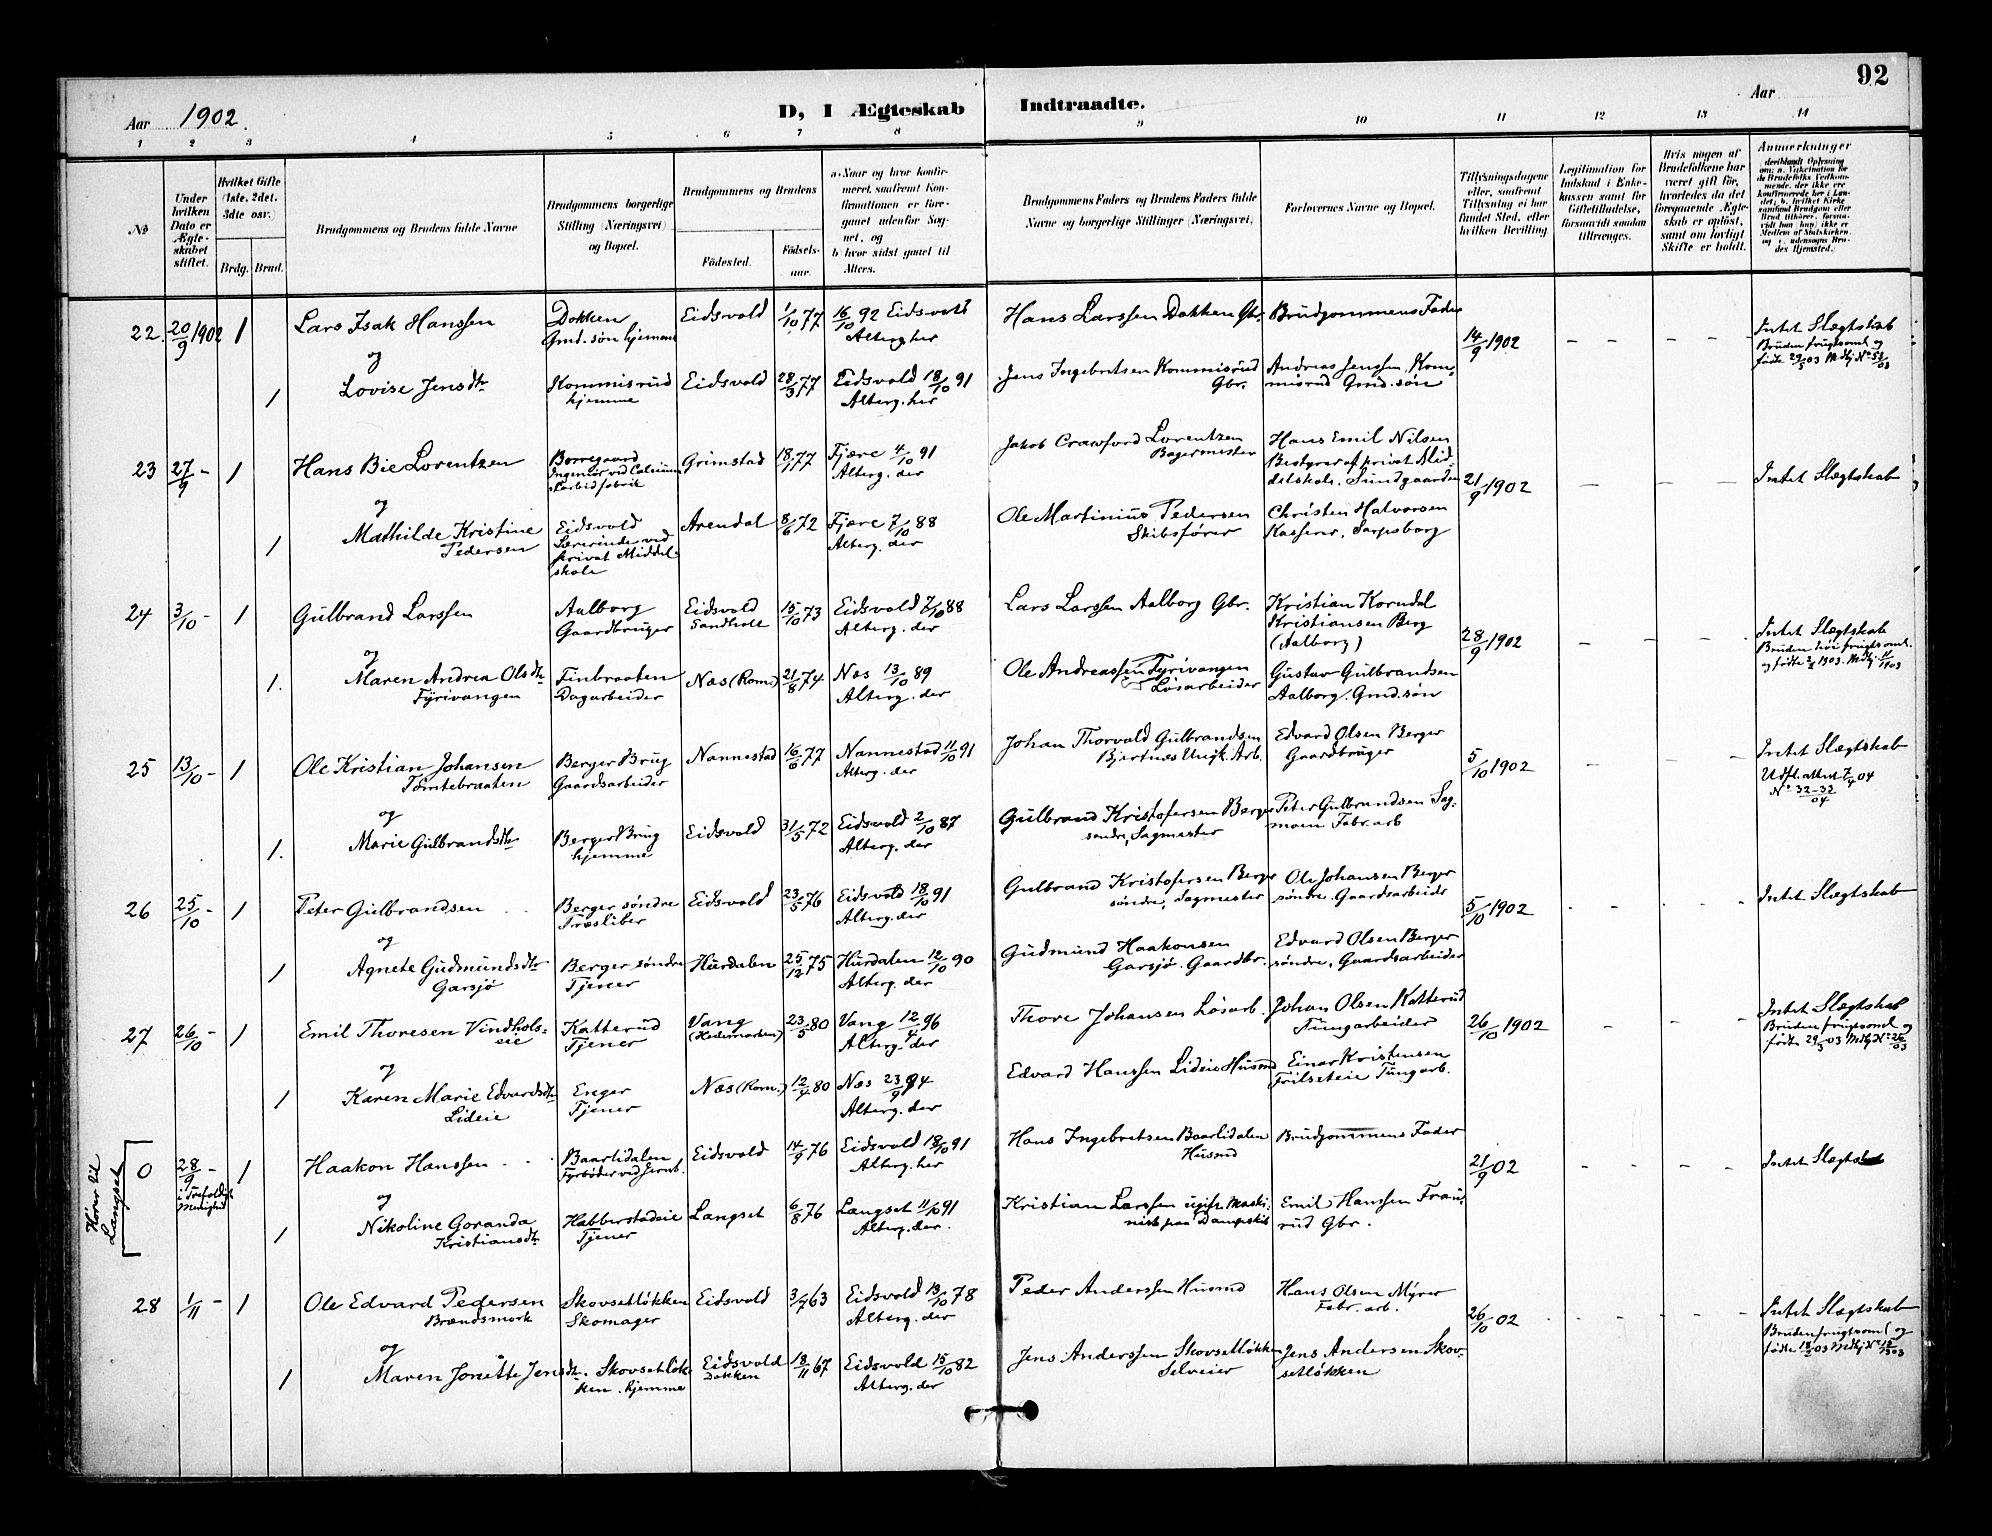 92
Aar 1902. D, I Ægteskab Indtraadte. Aar
1 2 3 4 5 6 7 8 9 10 11 12 13 14
No
Under hvilken Dato er Ægteskabet stiftet.
Hvilket Gifte (1ste, 2det, 3dte osv.)
Brdg. Brud.
Brudgommens og Brudens fulde Navne
Brudgommens borgerlige Stilling (Næringsvei) og Bopæl.
Brudgommens og Brudens
Fødested. Fødselsaar.
a. Naar og hvor konfirmeret, saafremt Konfirmationen er foregaaet udenfor Sognet, og
b. hvor sidst gaaet til Alters.
Brudgommens Faders og Brudens Faders fulde Navne og borgerlige Stillinger (Næringsvei)
Forlovernes Navne og Bopæl.
Tillysningsdagene eller, saafremt Tillysning ei har fundet Sted, efter hvilken Bevilling
Legitimation for Indskud i Enkekassen samt for Giftetilladelse, forsaavidt saadan tiltrænges.
Hvis nogen af Brudefolkene har været gift før, hvorledes da det foregaaende Ægteskab er opløst, samt om lovligt Skifte er holdt.
Anmærkninger
22. 20/9 1902 1 Lars Isak Hanssen Dokken Eidsvold 1/10 77 16/10 92 Eidsvold Hans Larssen Dokken Gbr. Brudgommens Fader
Gmd. søn hjemme Alterg. her 14/9 1902 — — — — Intet Slægtskab
og Bruden frugtsoml. og
1 Lovise Jensdtr Kommisrud Eidsvold 28/3 77 Eidsvold 18/10 91 Jens Ingebretsen Kommisrud Andreas Jenssen, Kom-
hjemme Alterg. her Gbr. misrud Gmd. søn
23 27/9 — 1 Hans Bie Lorentzen Borregaard Grimstad 18/1 77 Fjære 4/10 91 Jakob Crawford Lorentzen Hans Emil Nilsen
Ingeniør ved Calcium Alterg. der Bagermester Bestyrer af privat Mid-
karbidfabrik delskole. Sundgaarden 21/9 1902 — — — Intet Slægtskab
og
1 Mathilde Kristine Eidsvold Arendal 8/6 72 Fjære 7/10 88 Ole Martinius Pedersen Christen Halvorsen
Pedersen Lærerinde ved Alterg. der Skibsfører Kasserer, Sarpsborg
privat Middel-
skole
24 3/10 - 1 Gulbrand Larssen Aalborg Eidsvold 15/10 73 Eidsvold 7/10 88 Lars Larssen Aalborg Gbr. Kristian Korndal
Gaardbruger Sandholt Alterg. der Kristiansen Berg
(Aalborg) 28/9 1902 — — — Intet Slægtskab
og
1. Maren Andrea Olsdtr Finbraaten Næs (Rom.) 21/8 74 Næs 13/10 89 Ole Andreassen Fyrivangen Gustav Gulbrandsen
Fyrivangen Dagarbeider Alterg. der Løsarbeider Aalborg. Gmd. søn
25 13/10 - 1 Ole Kristian Johansen Berger Brug Nannestad 16/6 77 Nannestad 11/10 91 Johan Thorvald Gulbrandsen Edvard Olsen Berger
Tømtebraaten Gaardsarbeider Alterg. der Gaardbruger 5/10 1902 — — — Intet Slægtskab
Udfl. attest 7/4 04
No 32-33/04
og
1. Marie Gulbrandsdtr Berger Brug Eidsvold 31/5 72 Eidsvold 2/10 87 Gulbrand Kristofersen Berger Peter Gulbrandsen Sag-
hjemme Alterg. der søndre, Sagmester moen Fabr. arb
26 25/10 - 1 Peter Gulbrandsen Berger søndre Eidsvold 23/5 76 Eidsvold 18/10 91 Gulbrand Kristofersen Berger Ole Johansen Berger
Træsliber Alterg. der søndre, Sagmester søndre. Gaardsarbeide 5/10 1902 - - - - Intet Slægtskab
og
1 Agnete Gudmundsdtr Berger søndre Hurdalen 25/12 75 Hurdalen 12/10 90 Gudmund Haakonsen Edvard Olsen Berger
Garsjø Tjener Alterg. der Garsjø. Gaardbr. søndre, Gaardsarbeider
27 26/10 - 1 Emil Thoresen Vindhols- Katterud Vang 23/5 80 Vang 12/4 96 Thore Johansen Løsarb. Johan Olsen Katterud
eie Tjener (Hedemarken) Alterg. der Tømgarbeider 26/10 1902 - - - Intet Slægtskab
Bruden frugtsoml. og
og
1 Karen Marie Edvardsdtr Enger Næs (Rom.) 12/4 80 Næs 23/9 94 Edvard Hanssen Lideie Husmd Einar Kristensen
Lideie Tjener Alterg. der
Hører til Langset
0 28/9 - 1 Haakon Hanssen Baarlidalen Eidsvold 14/9 76 Eidsvold 18/10 91 Hans Ingebretsen Baarlidalen Brudgommens Fader
i Trefoldigh. Menighed Fyrbøder ved Jernb. Alterg. her Husmd 21/9 02 - - - - Intet Slægtskab
og
1 Nikoline Goranda Habberstadeie Langset 6/8 76 Langset 11/10 91 Kristian Larssen ugift Maski- Emil Hanssen Frau-
Kristiansdtr Tjener Alterg. der. nist paa Dampskib rud Gbr.
28 1/11 - 1 Ole Edvard Pedersen Skovsetløkken Eidsvold 3/7 63 Eidsvold 13/10 78 Peder Anderssen Husmd Hans Olsen Myrer
Brændsmork Skomager Alterg. der Fabr. arb. 26/10 02 - - - - Intet Slægtskab
og Bruden frugtsoml og
1 Maren Jonette Jensdtr. Skovsetløk- Eidsvold 18/11 67 Eidsvold 15/10 82 Jens Anderssen Skovsetløkken Jens Andersen Skov-
ken. hjemme Dokken Alterg. der Selveier setløkken